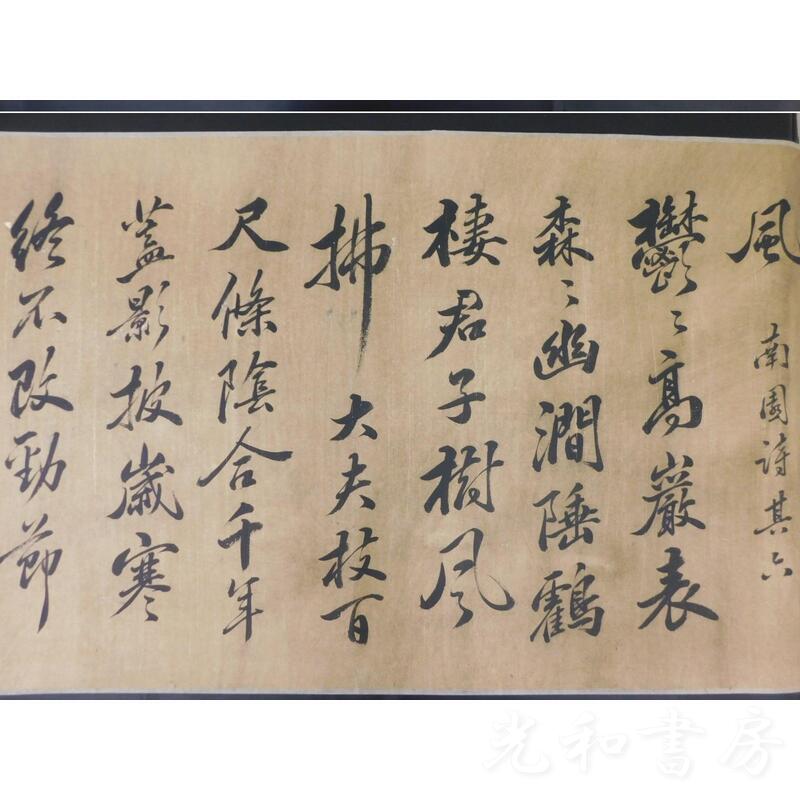 風
南園詩其六
鬱〻高巖表
森〻幽澗陲鶴
棲君子樹風
拂大夫枝百
尺條陰合千年
蓋影披歲寒
終不改勁節
光和書房